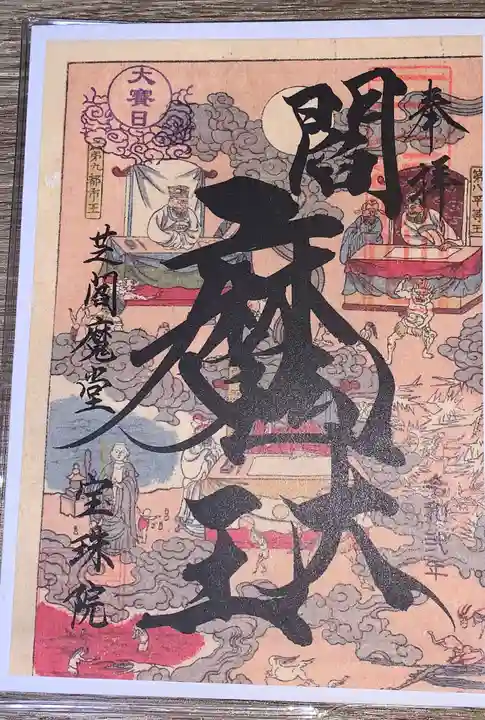 奉拝
第八平等王
閻魔大王
大賽日
第九都市王
芝閻魔堂 宝珠院
令和弐年